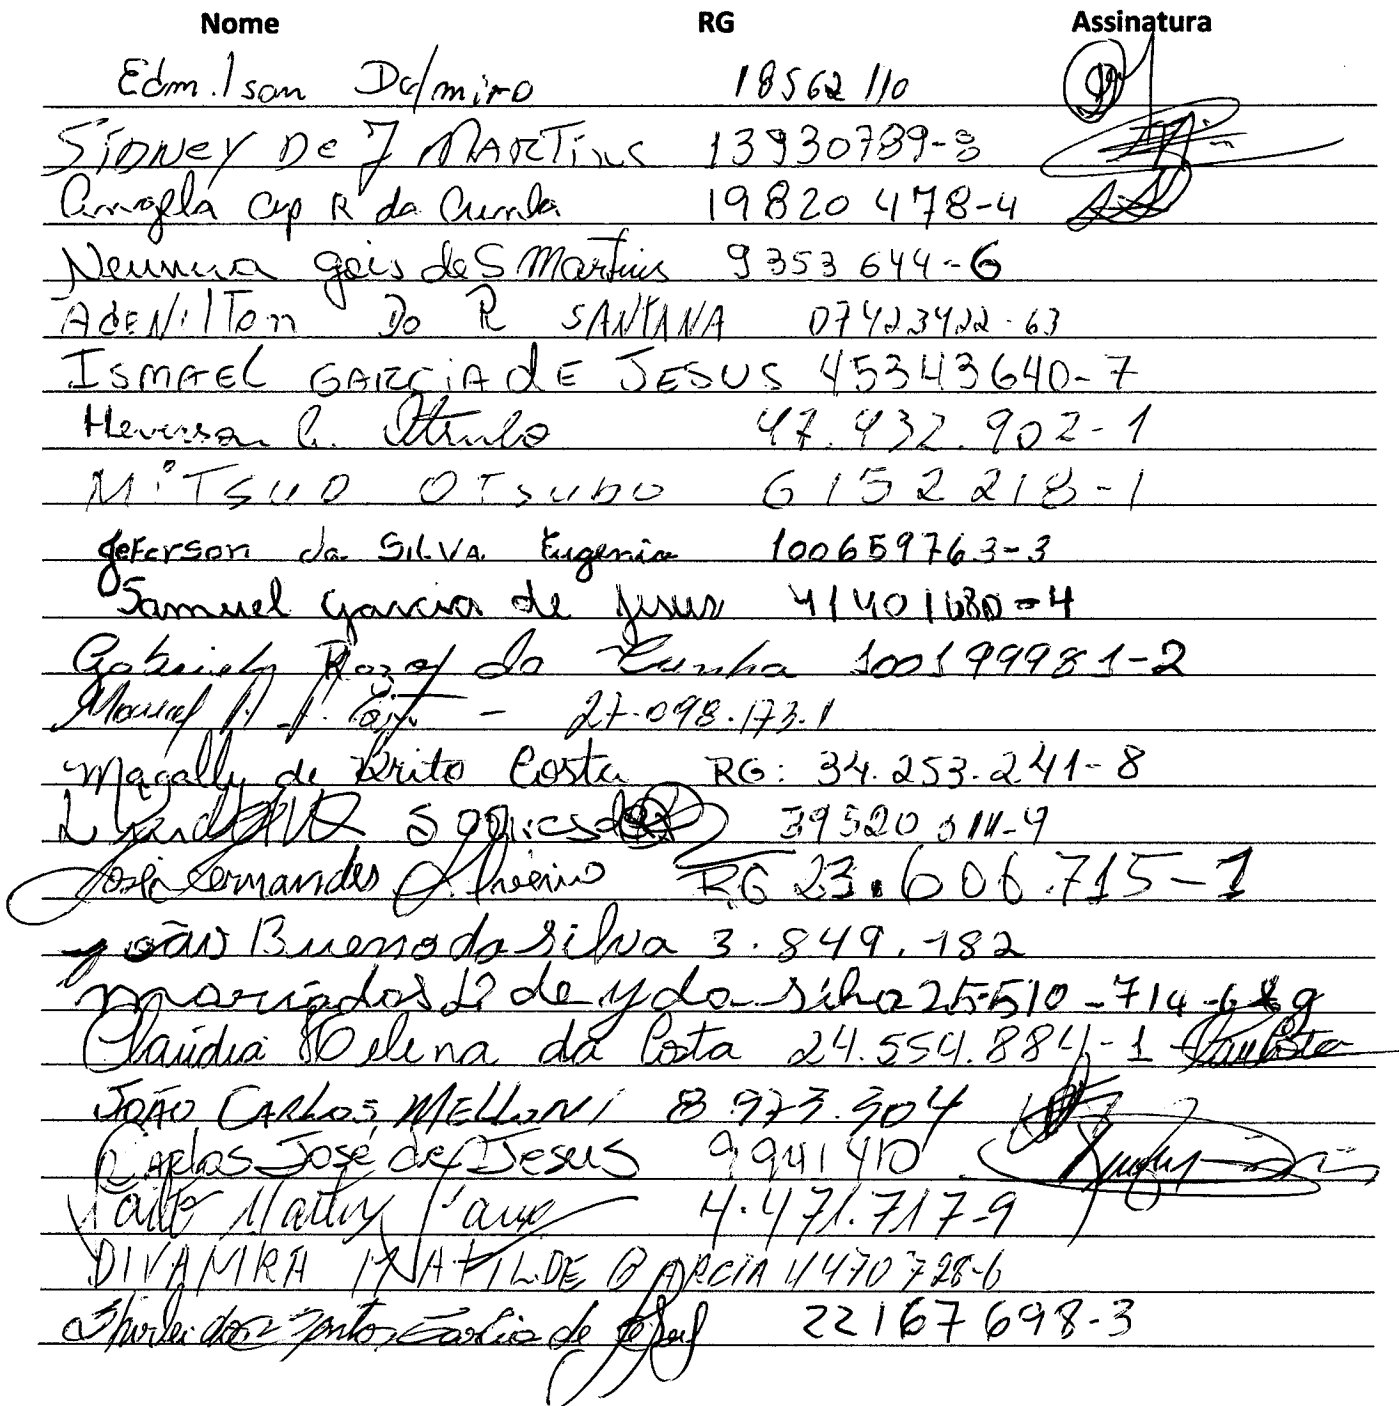 Nome RG Assinatura
Edmilson Dalmiro 18562110
SIDNEY De J MARTins 13930789-8
Angela Ap R da Cunha 19820478-4
Neunura Gois de S Martins 9353644-6
ADENilTon Do R SANTANA 07423422-63
ISMAEL GARCIA dE JESUS 45343640-7
Heverson C. 47.432.902-1
MiTSUO OTSUBO 6152218-1
Jeferson da SILVA Eugenio 100659763-3
Samuel Garcia de Jesus 41401680-4
da Cunha 100199981-2
27.098.173.1
Magally de Brito Costa RG: 34.253.241-8
39520
José Fernandes RG 23.606.715-1
João Bueno da Silva 3.849.182
Maria dos de da Silva 25-510-714-6
Claúdia Helena da Costa 24.554.884-1
JOÃO CARLOS MELLONI 8 973.904
CARlos José de Jesus 9941410
4.471.717-9
DIVAMIRA MATILDE GARCIA 4470728-6
Shirlei dos Santos Garcia de Jesus 22167698-3